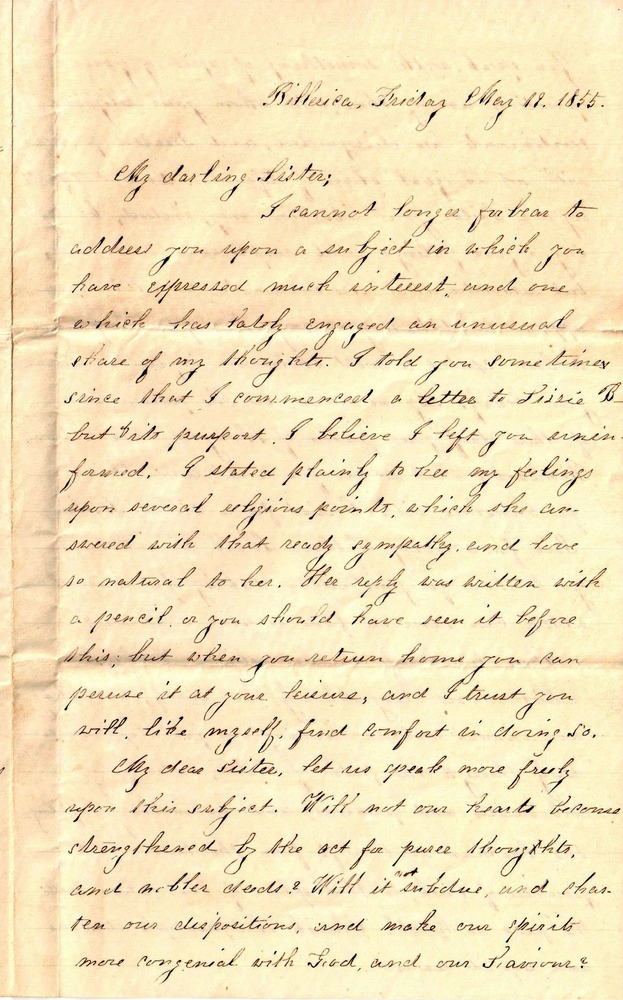 Billerica, Friday May 19. 1855.
My darling Sister;
I cannot longer forbear to
address you upon a subject in which you
have expressed much interest, and one
which has lately engaged an unusual
share of my thoughts. I told you sometimes
since that I commenced a letter to Lizzie B-
but its purport, I believe I left you unin-
formed. I stated plainly to her my feelings
upon several religious points, which she an-
swered with that ready sympathy, and love
so natural to her. Her reply was written with
a pencil, or you should have seen it before
this; but when you return home you can
peruse it at your leisure, and I trust you
will, like myself, find comfort in doing so.
My dear Sister, let us speak more freely
upon this subject. Will not our hearts become
strengthened by the act for purer thoughts,
and nobler deeds? Will it not subdue, and chas-
ten our dispositions, and make our spirits
more congenial with God, and our Saviour?